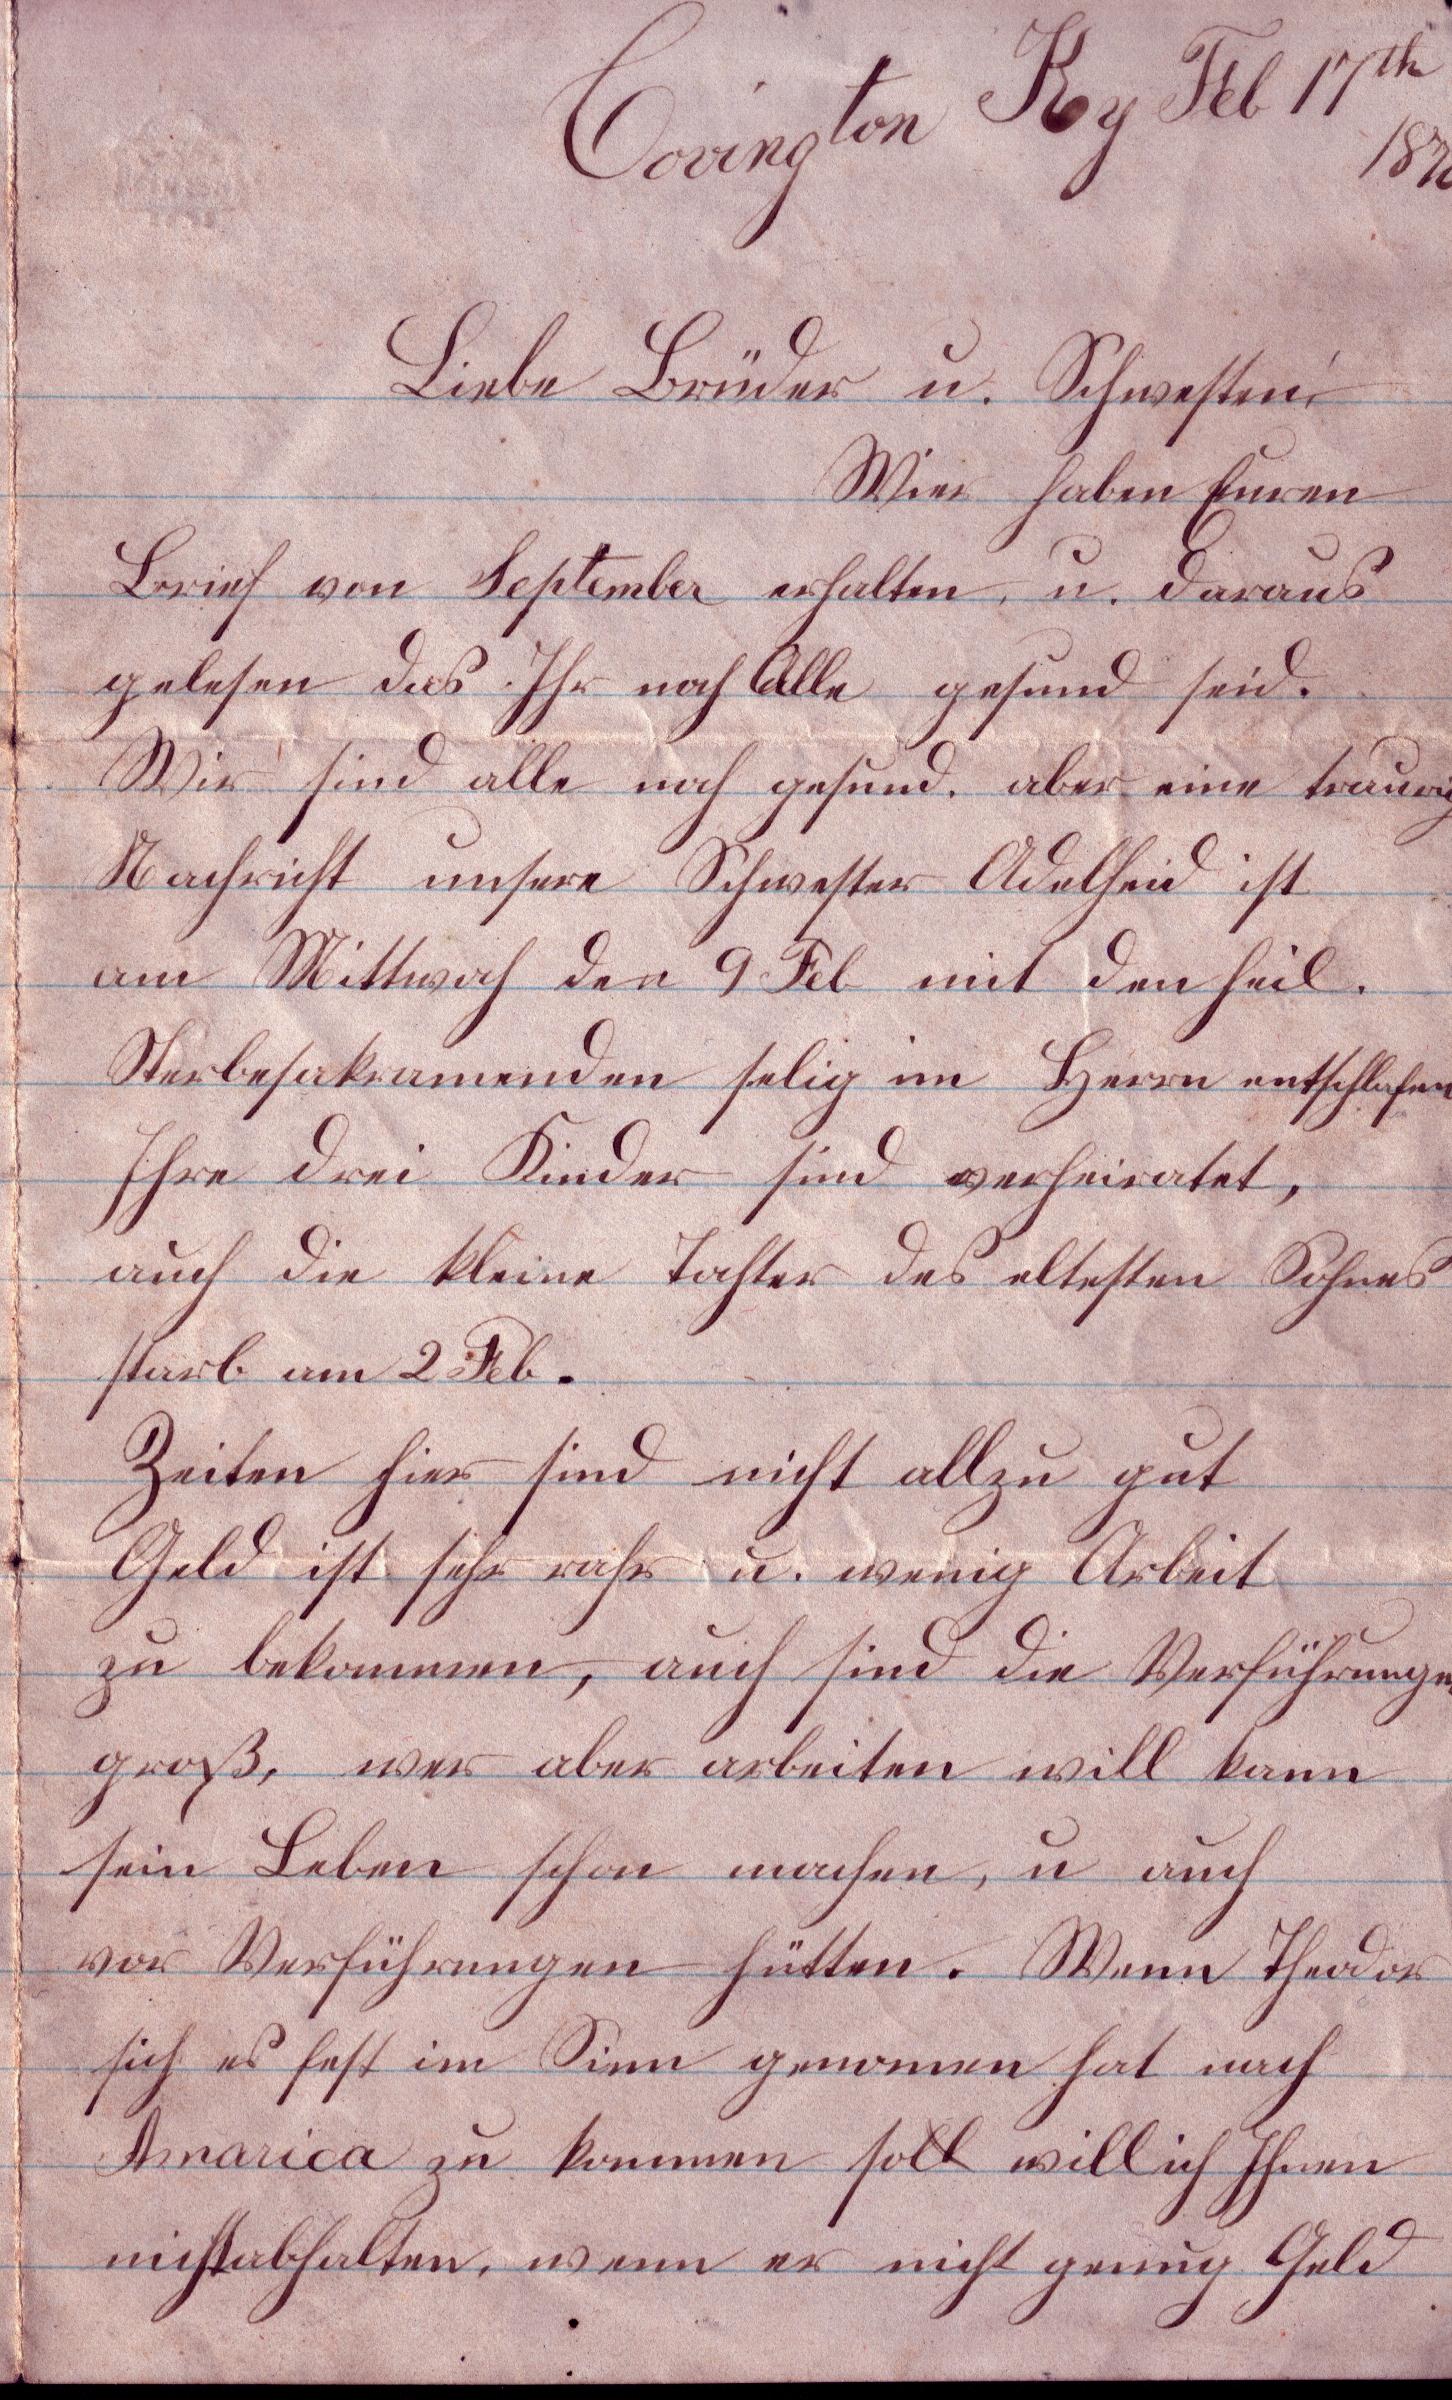 Covington Ky Feb 17th
187
Liebe Brüder u. Schwestern
Wier haben Euren
Brief von September erhalten, u. daraus
gelesen das Ihr noch Alle gesund seid.
Wir sind alle noch gesund. aber eine traurig
Nachricht unsere Schwester Adelheid ist
am Mittwoch den 9 Feb mit den heil.
Sterbesakramenden selig im Herrn entschlafen
Ihre drei Kinder sind verheiratet,
auch die kleine Tochter des eltesten Sohnes
starb am 2 Feb.
Zeiten hier sind nicht allzu gut
Geld ist sehr rahr u. wenig Arbeit
zu bekommen, auch sind die Verführungen
groß, wer aber arbeiten will kann
sein Leben schon machen, u auch
vor Verführungen hütten. Wenn Theodor
sich es fest im Sinn genomen hat nach
Amarica zu kommen soll will ich Ihnen
nicht abhalten, wenn er nicht genug Geld